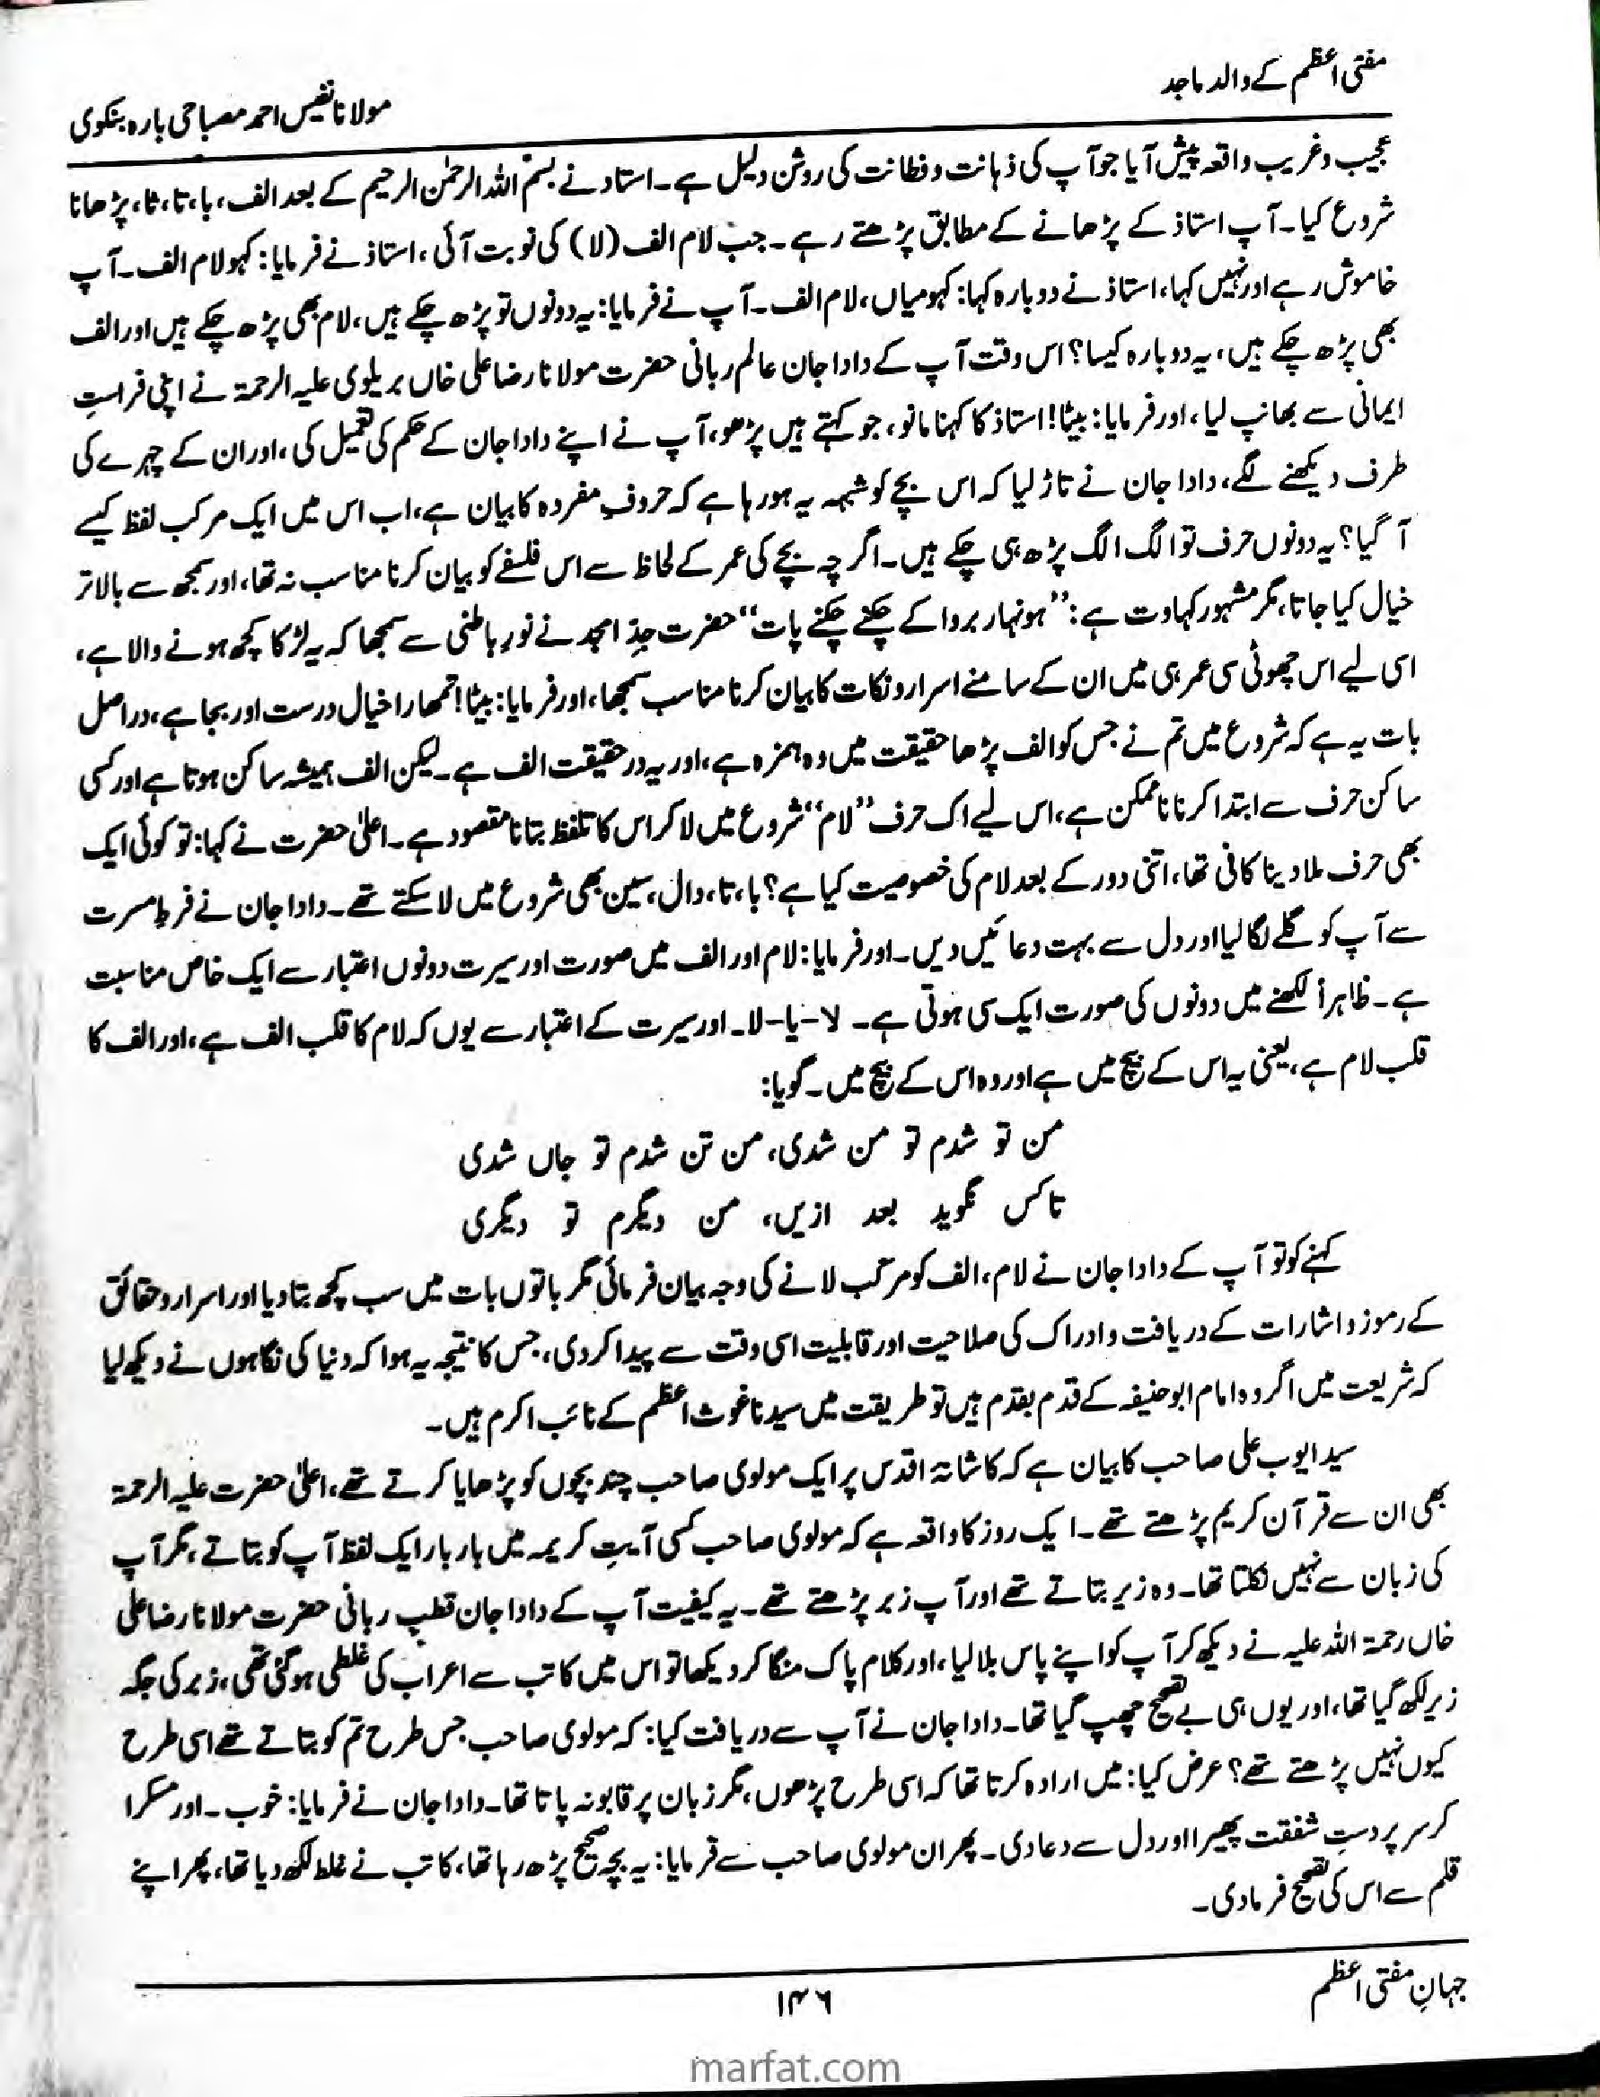 مفتی اعظم کے والد ماجد
مولانا نفیس احمد مصباحی بارہ بنکوی
عجیب و غریب واقعہ پیش آیا جو آپ کی ذہانت و فطانت کی روشن دلیل ہے۔ استاد نے بسم اللہ الرحمٰن الرحیم کے بعد الف، با، تا، ثا، پڑھانا
شروع کیا۔ آپ استاذ کے پڑھانے کے مطابق پڑھتے رہے۔ جب لام الف (لا) کی نوبت آئی، استاذ نے فرمایا: کہو لام الف۔ آپ
خاموش رہے اور نہیں کہا، استاذ نے دوبارہ کہا: کہو میاں، لام الف۔ آپ نے فرمایا: یہ دونوں تو پڑھ چکے ہیں، لام بھی پڑھ چکے ہیں اور الف
بھی پڑھ چکے ہیں، یہ دوبارہ کیسا؟ اس وقت آپ کے دادا جان عالم ربانی حضرت مولانا رضا علی خاں بریلوی علیہ الرحمۃ نے اپنی فراستِ
ایمانی سے بھانپ لیا، اور فرمایا: بیٹا! استاذ کا کہنا مانو، جو کہتے ہیں پڑھو، آپ نے اپنے دادا جان کے حکم کی تعمیل کی، اور ان کے چہرے کی
طرف دیکھنے لگے، دادا جان نے تاڑ لیا کہ اس بچے کو شبہہ یہ ہو رہا ہے کہ حروفِ مفردہ کا بیان ہے، اب اس میں ایک مرکب لفظ کیسے
آ گیا؟ یہ دونوں حرف تو الگ الگ پڑھ ہی چکے ہیں۔ اگر چہ بچے کی عمر کے لحاظ سے اس فلسفے کو بیان کرنا مناسب نہ تھا، اور سمجھ سے بالا تر
خیال کیا جاتا، مگر مشہور کہاوت ہے: ”ہونہار بروا کے چکنے چکنے پات“ حضرت جدِ امجد نے نورِ باطنی سے سمجھا کہ یہ لڑکا کچھ ہونے والا ہے،
اسی لیے اس چھوٹی سی عمر ہی میں ان کے سامنے اسرار و نکات کا بیان کرنا مناسب سمجھا، اور فرمایا: بیٹا! تمھارا خیال درست اور بجا ہے، دراصل
بات یہ ہے کہ شروع میں تم نے جس کو الف پڑھا حقیقت میں وہ ہمزہ ہے، اور یہ در حقیقت الف ہے۔ لیکن الف ہمیشہ ساکن ہوتا ہے اور کسی
ساکن حرف سے ابتدا کرنا ناممکن ہے، اس لیے اک حرف ”لام“ شروع میں لا کر اس کا تلفظ بتانا مقصود ہے۔ اعلیٰ حضرت نے کہا: تو کوئی ایک
بھی حرف ملا دینا کافی تھا، اتنی دور کے بعد لام کی خصوصیت کیا ہے؟ با، تا، دال، سین بھی شروع میں لا سکتے تھے۔ دادا جان نے فرطِ مسرت
سے آپ کو گلے لگا لیا اور دل سے بہت دعائیں دیں۔ اور فرمایا: لام اور الف میں صورت اور سیرت دونوں اعتبار سے ایک خاص مناسبت
ہے۔ ظاہراً لکھنے میں دونوں کی صورت ایک سی ہوتی ہے۔ لا-یا-لا۔ اور سیرت کے اعتبار سے یوں کہ لام کا قلب الف ہے، اور الف کا
قلب لام ہے، یعنی یہ اس کے بیچ میں ہے اور وہ اس کے بیچ میں۔ گویا:
من تو شدم تو من شدی، من تن شدم تو جاں شدی
تا کس نگوید بعد ازیں، من دیگرم تو دیگری
کہنے کو تو آپ کے دادا جان نے لام، الف کو مرکب لانے کی وجہ بیان فرمائی مگر باتوں بات میں سب کچھ بتا دیا اور اسرار و حقائق
کے رموز و اشارات کے دریافت و ادراک کی صلاحیت اور قابلیت اسی وقت سے پیدا کردی، جس کا نتیجہ یہ ہوا کہ دنیا کی نگاہوں نے دیکھ لیا
کہ شریعت میں اگر وہ امام ابو حنیفہ کے قدم بقدم ہیں تو طریقت میں سیدنا غوث اعظم کے نائب اکرم ہیں۔
سید ایوب علی صاحب کا بیان ہے کہ کاشانۂ اقدس پر ایک مولوی صاحب چند بچوں کو پڑھایا کرتے تھے، اعلیٰ حضرت علیہ الرحمۃ
بھی ان سے قرآن کریم پڑھتے تھے۔ ایک روز کا واقعہ ہے کہ مولوی صاحب کسی آیتِ کریمہ میں بار بار ایک لفظ آپ کو بتاتے، مگر آپ
کی زبان سے نہیں نکلتا تھا۔ وہ زیر بتاتے تھے اور آپ زبر پڑھتے تھے۔ یہ کیفیت آپ کے دادا جان قطبِ ربانی حضرت مولانا رضا علی
خاں رحمۃ اللہ علیہ نے دیکھ کر آپ کو اپنے پاس بلا لیا، اور کلام پاک منگا کر دیکھا تو اس میں کاتب سے اعراب کی غلطی ہوگئی تھی، زبر کی جگہ
زیر لکھ گیا تھا، اور یوں ہی بے تصحیح چھپ گیا تھا۔ دادا جان نے آپ سے دریافت کیا: کہ مولوی صاحب جس طرح تم کو بتاتے تھے اسی طرح
کیوں نہیں پڑھتے تھے؟ عرض کیا: میں ارادہ کرتا تھا کہ اسی طرح پڑھوں، مگر زبان پر قابو نہ پاتا تھا۔ دادا جان نے فرمایا: خوب۔ اور مسکرا
کر سر پر دستِ شفقت پھیرا اور دل سے دعا دی۔ پھر ان مولوی صاحب سے فرمایا: یہ بچہ صحیح پڑھ رہا تھا، کاتب نے غلط لکھ دیا تھا، پھر اپنے
قلم سے اس کی تصحیح فرمادی۔
جہانِ مفتی اعظم
۱۴۶
marfat.com